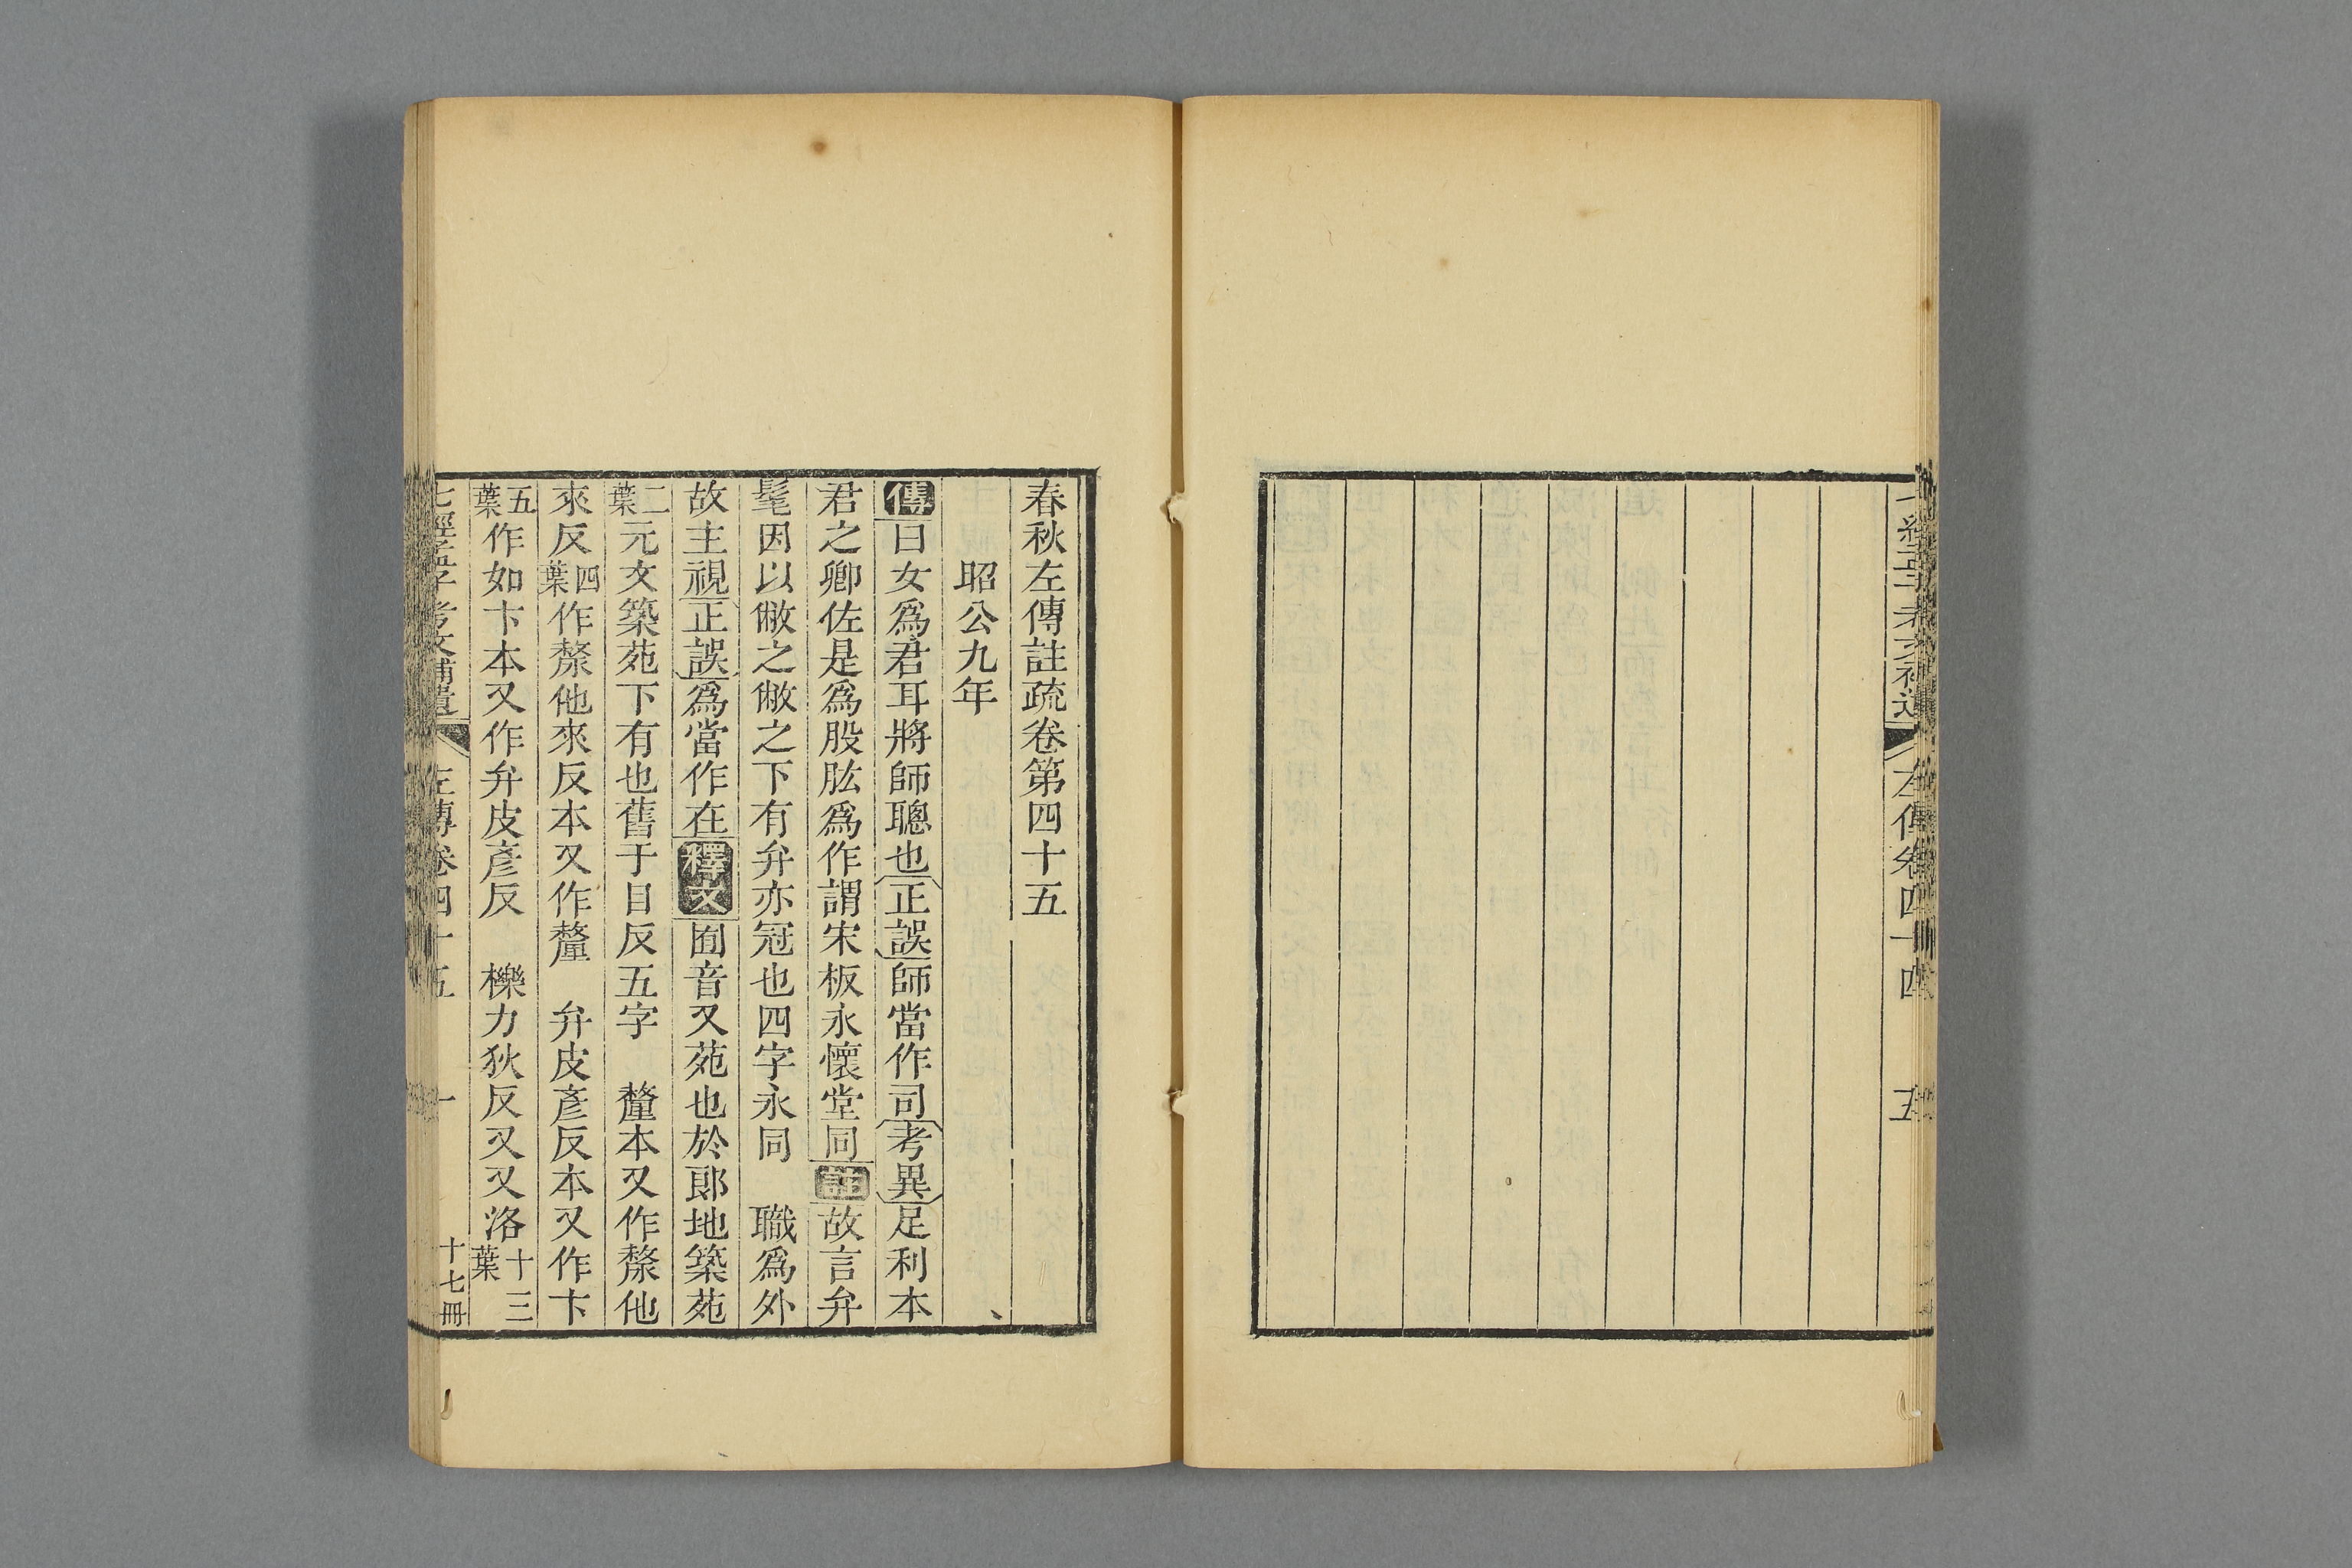 左傳卷四十四
五
春秋左傳註疏卷第四十五
昭公九年
傳曰女爲君耳將師聰也正誤師當作司考異足利本
君之卿佐是爲股肱爲作謂宋板永懷堂同註故言弁
髦因以敝之敝之下有弁亦冠也四字永同　職爲外
故主視正誤爲當作在釋文囿音又苑也於郎地築苑
二葉元文築苑下有也舊于目反五字　釐本又作斄他
來反四葉作斄他來反本又作釐　弁皮彥反本又作卞
五葉作如卞本又作弁皮彥反　櫟力狄反又又洛十三葉
七經孟子考文補遺
左傳卷四十五
一
十七冊